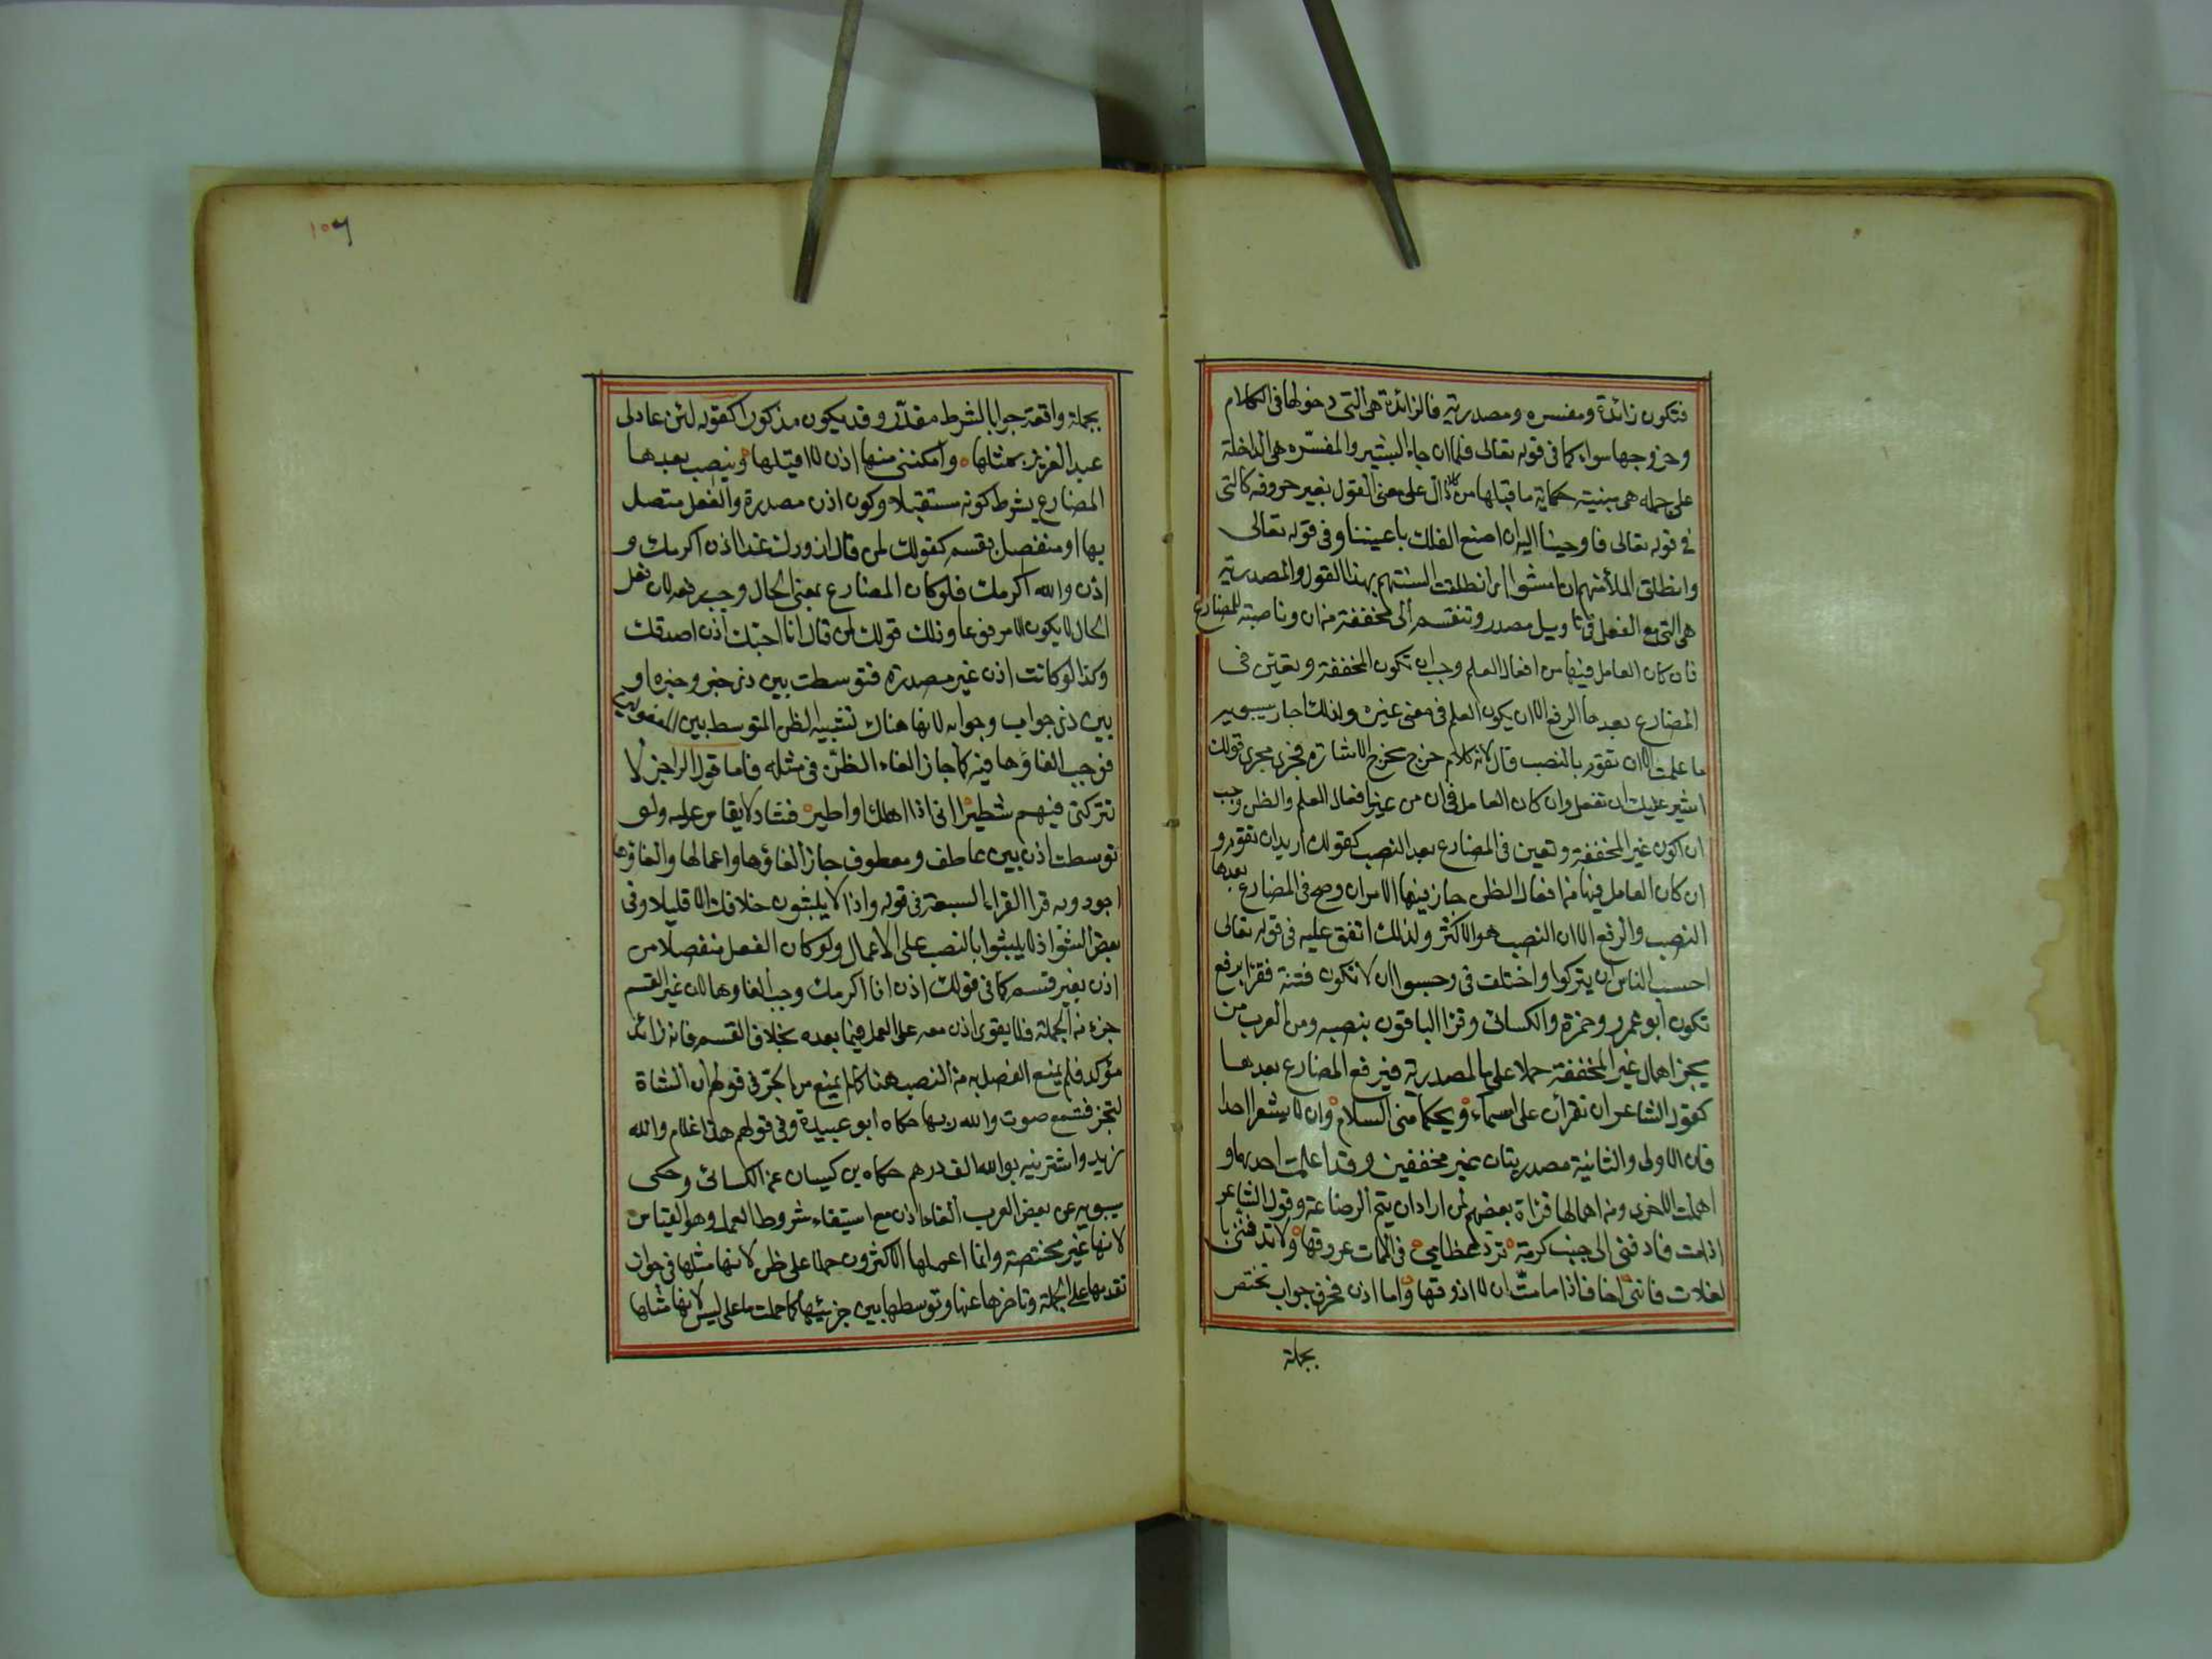 فتكون زائدة ومفسره ومصدرية فالزائدة هى التى دخولها فى الكلام
وخروجها سواء كما فى قوله تعالى فلما ان جاء البشير والمفسّره هى الداخلة
على جمله هى مبنية حكاية ما قبلها من دال على معنى القول بغير حروفه كالتى
فى قوله تعالى فاوحينا اليه ان اصنع الفلك باعيننا وفى قوله تعالى
وانطلق الملأ منهم ان امشوا اى انطلقت السنتهم بهذا القول والمصدرية
هى التى مع الفعل فى تاويل مصدر وتنقسم الى مخففة من ان وناصبة للمضارع
فان كان العامل فيها من افعال العلم وجب ان تكون المخففة وتعيّن فى
المضارع بعدها الرفع الا ان يكون العلم فى معنى غيره ولذلك اجاز سيبويه
ما علمت الا ان تقوم بالنصب قال لانه كلام خرج مخرج الاشارة فجرى مجرى قولك
اشير عليك ان تفعل وان كان العامل فى ان من غير افعال العلم والظن وجب
ان تكون غير المخففة وتعين فى المضارع بعد النصب كقولك اريد ان تقوم و
ان كان العامل فيها من افعال الظن جاز فيها الامران وصح فى المضارع بعدها
النصب والرفع الا ان النصب هو الاكثر ولذلك اتفق عليه فى قوله تعالى
احسب الناس ان يتركوا واختلف فى وحسبوا ان لا تكون فتنة فقرا برفع
تكون ابو عمرو وحمزة والكسائى وقرا الباقون بنصبه ومن العرب من
يجز اهمال غير المخففة حملا على ما المصدرية فيرفع المضارع بعدها
كقول الشاعر ان تقرأن على اسماء ويحكما منى السلام وان لا يشعرا احدا
فان الاولى والثانية مصدريتان غير مخففين وقد اعملت احديهما و
اهملت الاخرى ومن اهمالها قراة بعضهم لمن اراد ان يتم الرضاعة وقول الشاعر
اذا مت فادفنى الى جنب كرمة تروّ عظامى فى الممات عروقها ولا تدفننى با
لفلات فاننى اخاف اذا ما متّ ان لا اذوقها واما اذن فحرف جواب تختص
بجملة
١٥٦
بجملة واقعة جوابا لشرط مقدّر وقد يكون مذكورا كقوله لئن عاد لى
عبد العزيز بمثلها وامكننى منها اذن لا اقيلها وينصب بعدها
المضارع بشرط كونه مستقبلا وكون اذن مصدرة والفعل متصل
بها او منفصل بقسم كقولك لمن قال ازورك غدا اذن اكرمك و
اذن والله اكرمك فلو كان المضارع بمعنى الحال وجب رفعه لان فعل
الحال لا يكون الا مرفوعا وذلك قولك لمن قال انا احبك اذن اصدقك
وكذا لو كانت اذن غير مصدرة فتوسطت بين ذى خبر وخبره او
بين ذى جواب وجوابه لانها هناك تشبيه الظن المتوسط بين المفعولين
فوجب الغاؤها فيه كما جاز الغاء الظن فى مثله فاما قول الراجز لا
تتركنى فيهم شطيرا انى اذا اهلك او اطير فشاذ لا يقاس عليه ولو
توسطت اذن بين عاطف ومعطوف جاز الغاؤها واعمالها والغاؤها
اجود وبه قرا القراء السبعة فى قوله واذا لا يلبثون خلافك الا قليلا وفى
بعض الشواذ لا يلبثوا بالنصب على الاعمال ولو كان الفعل منفصلا من
اذن بغير قسم كما فى قولك اذن انا اكرمك وجب الغاوها لان غير القسم
جزء من الجملة فلا يقوى اذن معه على العمل فيما بعده بخلاف القسم فانه زائد
مؤكد فلم يمنع الفصل به من النصب هنا كما لم يمنع من الجرّ فى قولهم ان الشاة
لتجتر فتسمع صوت والله ربها حكاه ابو عبيدة وفى قولهم هذا غلام والله
زيد واشتريته بوالله الف درهم حكاه بن كيسان عن الكسائى وحكى
سيبويه عن بعض العرب الغاء اذن مع استيفاء شروط العمل وهو القياس
لانها غير مختصة وانما اعملها الاكثرون حملا على ظن لانها مثلها فى جواز
تقدمها على الجملة وتاخرها عنها وتوسطها بين جزئيها كما حملت ما على ليس لانها مثلها